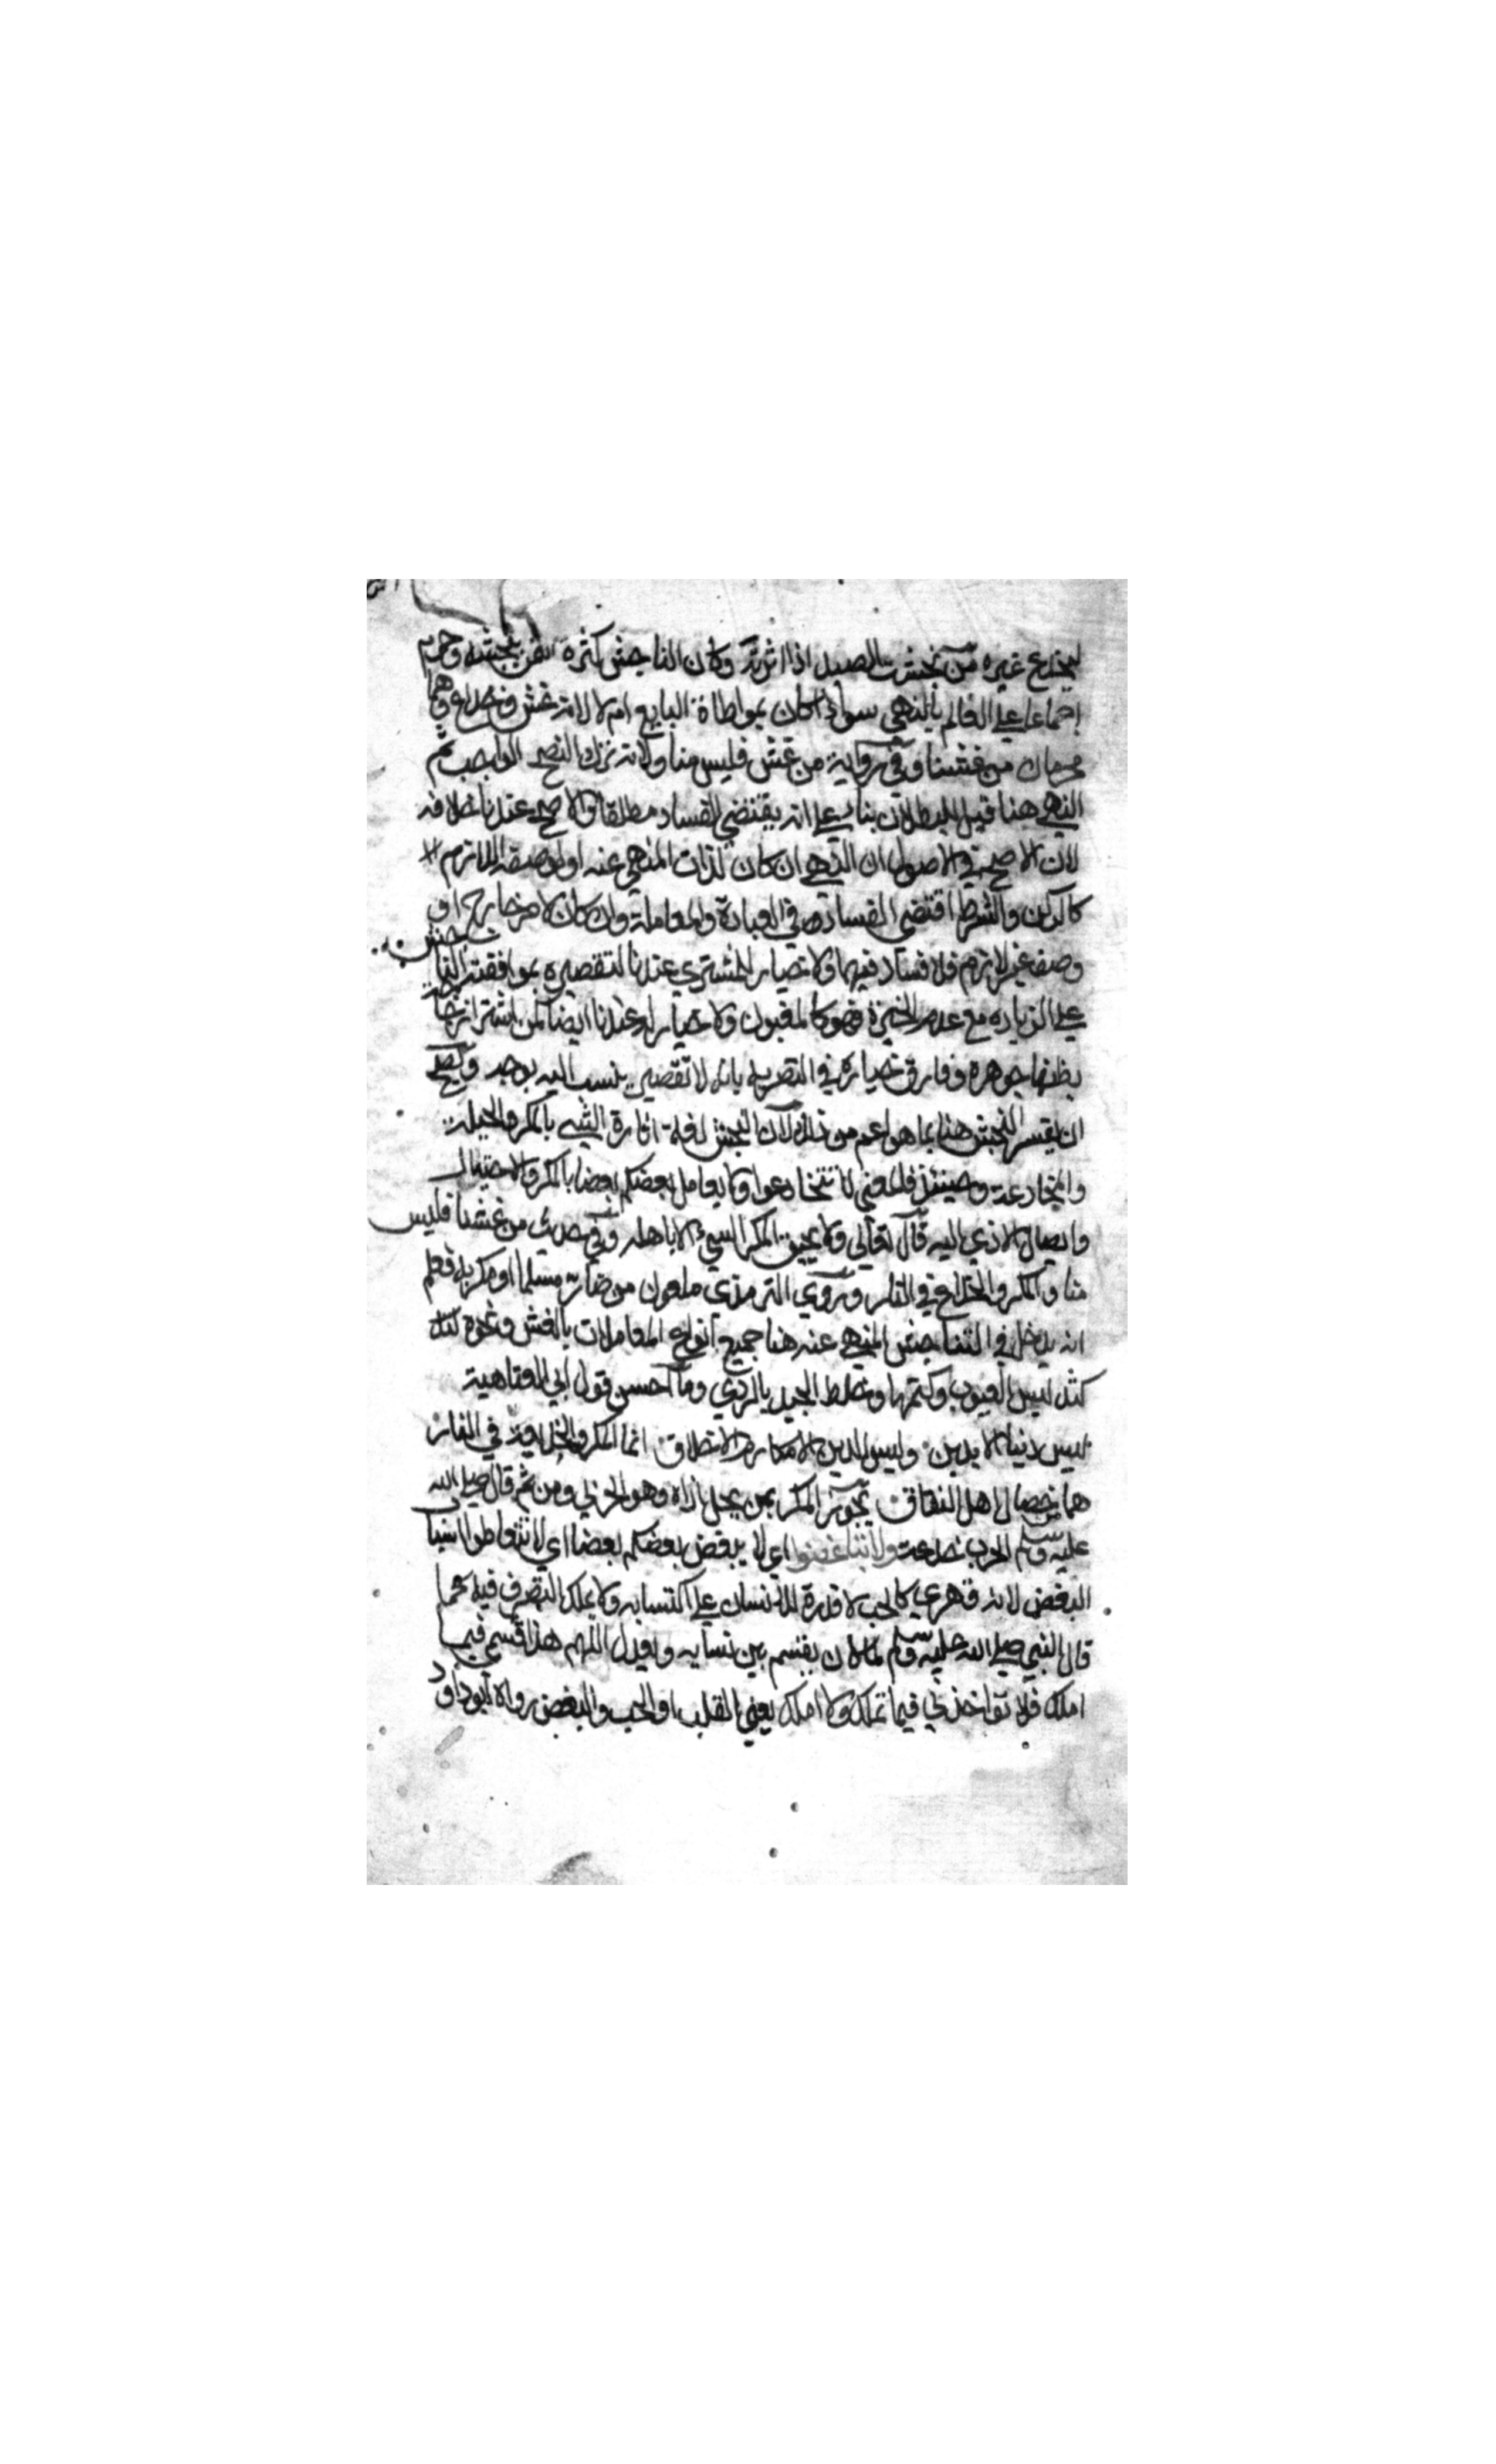 ليخدع غيره من نجشت الصيد اذا اثرته وكان الناجش كثرة الثمن بنجشه وحرم
اجماعا على العالم بالنهي سواء اكان بمواطاة البايع ام لا لانه غش وخداع وهما
محرمان من غشنا وفي رواية من غش فليس منا ولانه ترك النصح الواجب ثم
النهي هنا قيل للبطلان بناء على انه يقتضي الفساد مطلقا والاصح عندنا خلافه
لان الاصح في الاصول ان النهي ان كان لذات المنهي عنه او لوصفه اللازم
كالركن والشرط اقتضى الفساد في العبادة والمعاملة وان كان لامر خارج او
وصف غير لازم فلا فساد فيهما ولا خيار للمشتري عندنا لتقصيره بموافقته الناجش
على الزيادة مع عدم الخبرة فهو كالمغبون ولا خيار له عندنا ايضا كمن اشترى زجاجة
يظنها جوهرة وفارق خياره في التصرية بانه لا تقصير ينسب اليه بوجه ويصح
ان يفسر النجش هنا بما هو اعم من ذلك لان النجش لغة اثارة الشيء بالمكر والحيلة
والمخادعة وحينئذ فالمعنى لا تتخادعوا ولا يعامل بعضكم بعضا بالمكر والاحتيال
وايصال الاذي اليه قال تعالى ولا يحيق المكر السيء الا باهله وفي حديث من غشنا فليس
منا والمكر والخداع في النار وروي الترمذي ملعون من ضار مسلما او مكر به فعلم
انه يدخل في التناجش المنهي عنه هنا جميع انواع المعاملات بالغش ونحوه
كتدليس العيوب وكتمها وخلط الجيد بالردي وما احسن قول ابي العتاهية
ليس دنيا الا بدين وليس الدين الا مكارم الاخلاق انما المكر والخديعة في النار
هما خصال اهل النفاق يجوز المكر بمن يحل اذاه وهو الحربي ومن ثم قال صلى الله
عليه وسلم الحرب خدعت ولا تباغضوا اي لا يبغض بعضكم بعضا اي لا تتعاطوا اسباب
البغض لانه قهري كالحب لا قدرة للانسان على اكتسابه ولا يملك التصرف فيه كما
قال النبي صلى الله عليه وسلم لما كان يقسم بين نسايه ويعدل اللهم هذا قسمي فيما
املك فلا تواخذني فيما تملك ولا املك يعني القلب او الحب والبغض رواه ابو داود